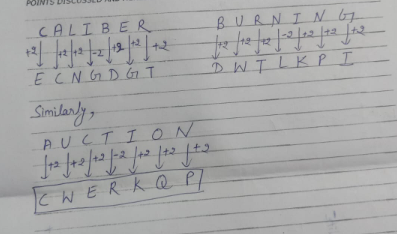 POINTS DISCUSSED
C A L I B E R
+2 +2 +2 -2 +2 +2 +2
E C N G D G T
B U R N I N G
+2 +2 +2 -2 +2 +2 +2
D W T L K P I
Similarly,
A U C T I O N
+2 +2 +2 -2 +2 +2 +2
C W E R K Q P